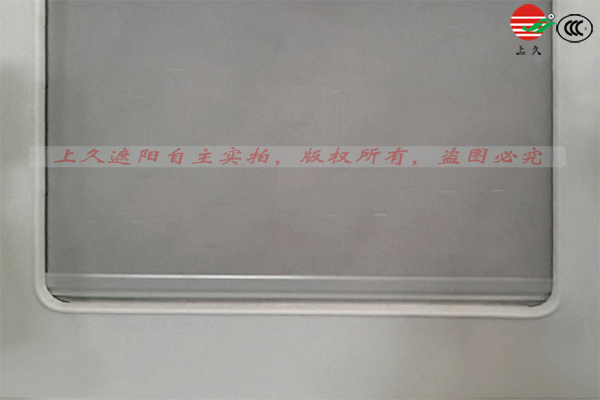 上久
上久遮阳自主实拍，版权所有，盗图必究